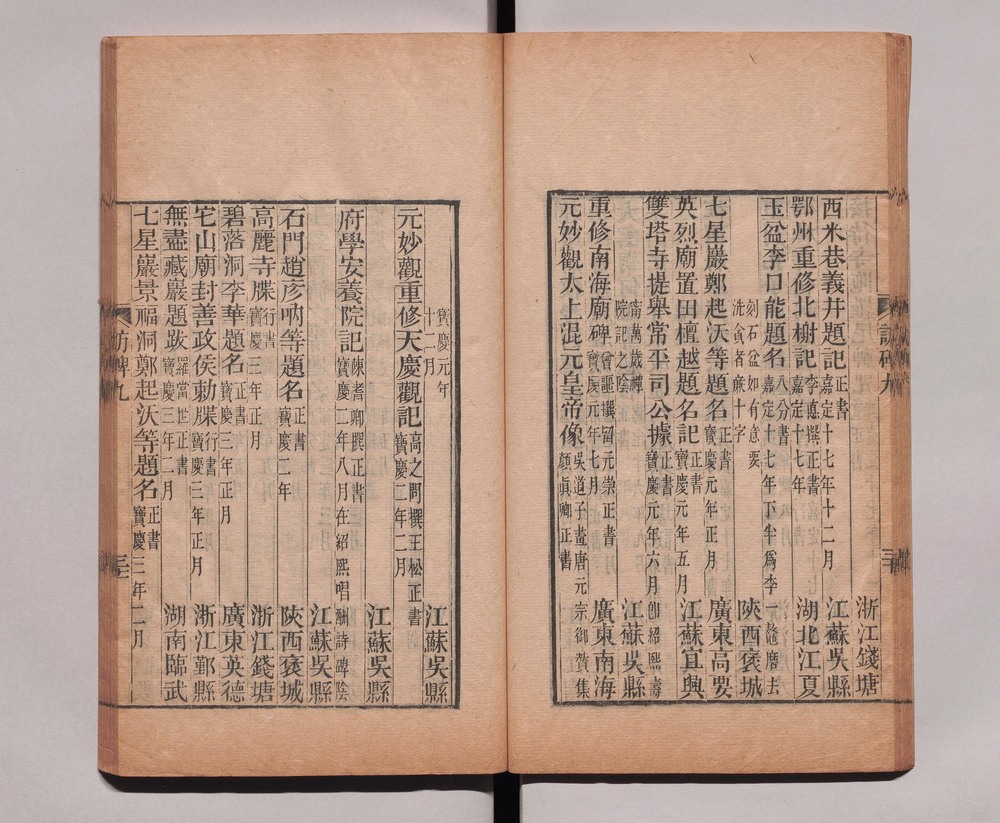 浙江錢塘
西米巷義井題記正書嘉定十七年十二月 江蘇吳縣
鄂州重修北榭記李𢙢撰正書嘉定十七年 湖北江夏
玉盆李口能題名八分書嘉定十七年下半爲李一鼇磨去
刻石盆如有意要洗貪者廉十字 陝西褒城
七星巖鄭起沃等題名正書寶慶元年正月 廣東高要
英烈廟置田檀越題名記正書寶慶元年五月 江蘇宜興
雙塔寺提舉常平司公據正書寶慶元年六月卽紹熙壽
甯萬歲禪院記之陰 江蘇吳縣
重修南海廟碑曾噩撰留元崇正書寶慶元年七月 廣東南海
元妙觀太上混元皇帝像吳道子畫唐元宗御贊集顏眞卿正書
寶慶元年十二月 江蘇吳縣
元妙觀重修天慶觀記高之問撰王松正書寶慶二年二月
江蘇吳縣
府學安養院記陳耆卿撰正書寶慶二年八月在紹熙唱酬詩碑陰
江蘇吳縣
石門趙彥吶等題名正書寶慶二年 陝西褒城
高麗寺牒行書寶慶三年正月 浙江錢塘
碧落洞李華題名正書寶慶三年正月 廣東英德
宅山廟封善政侯勅牒行書寶慶三年正月 浙江鄞縣
無盡藏巖題跋羅當世正書寶慶三年二月 湖南臨武
七星巖景福洞鄭起沃等題名正書寶慶三年二月
訪碑九